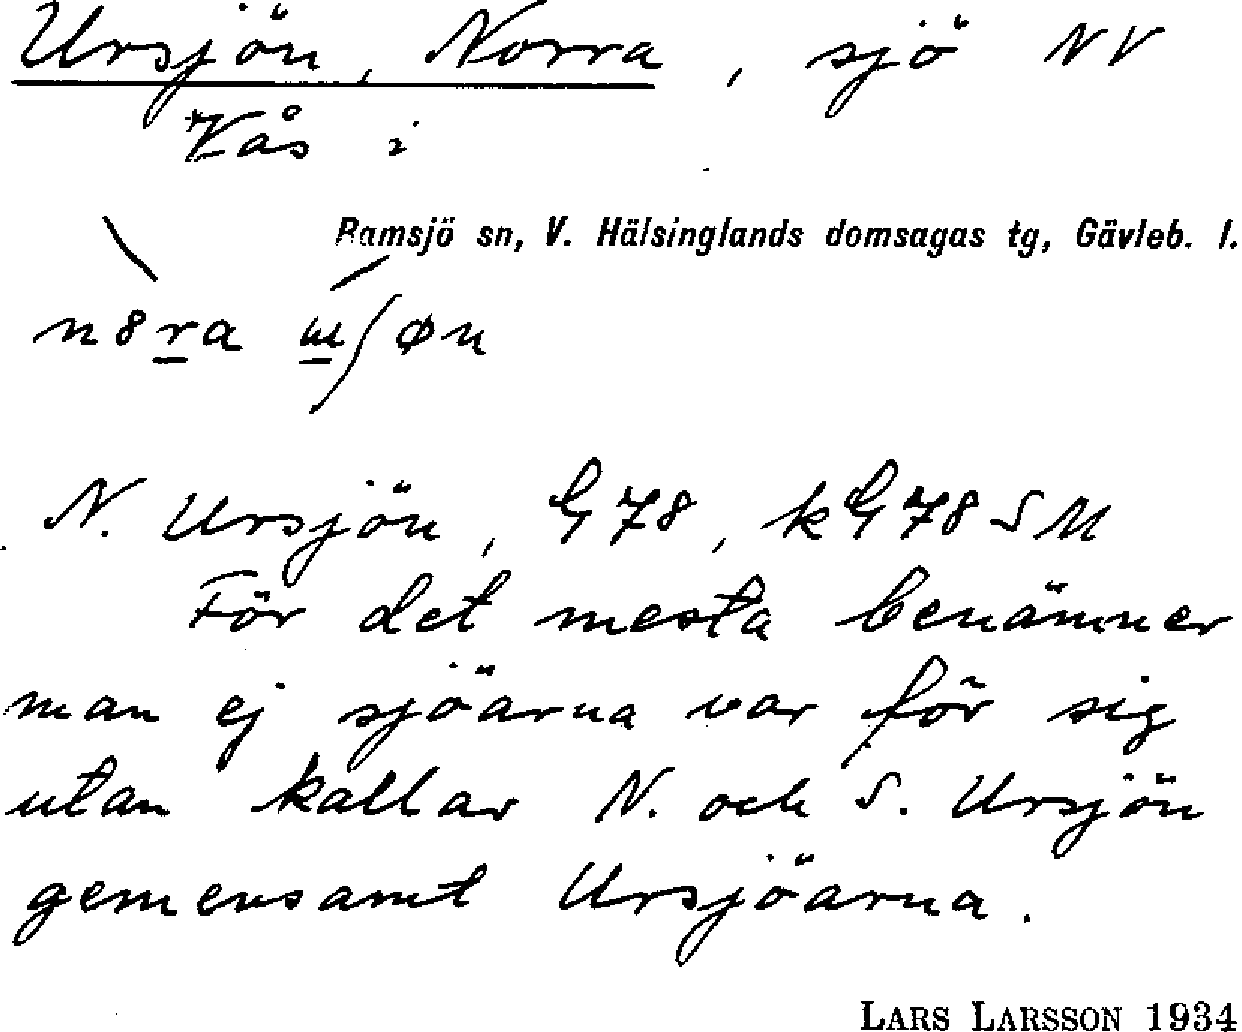 Ursjön, Norra, sjö NV
Kås i
Ramsjö sn, V. Hälsinglands domsagas tg, Gävleb. l.
N. Ursjön, G78, kG78SM
För det mesta benämner
man ej sjöarna var för sig
utan kallar N. och S. Ursjön
gemensamt Ursjöarna.
LARS LARSSON 1934